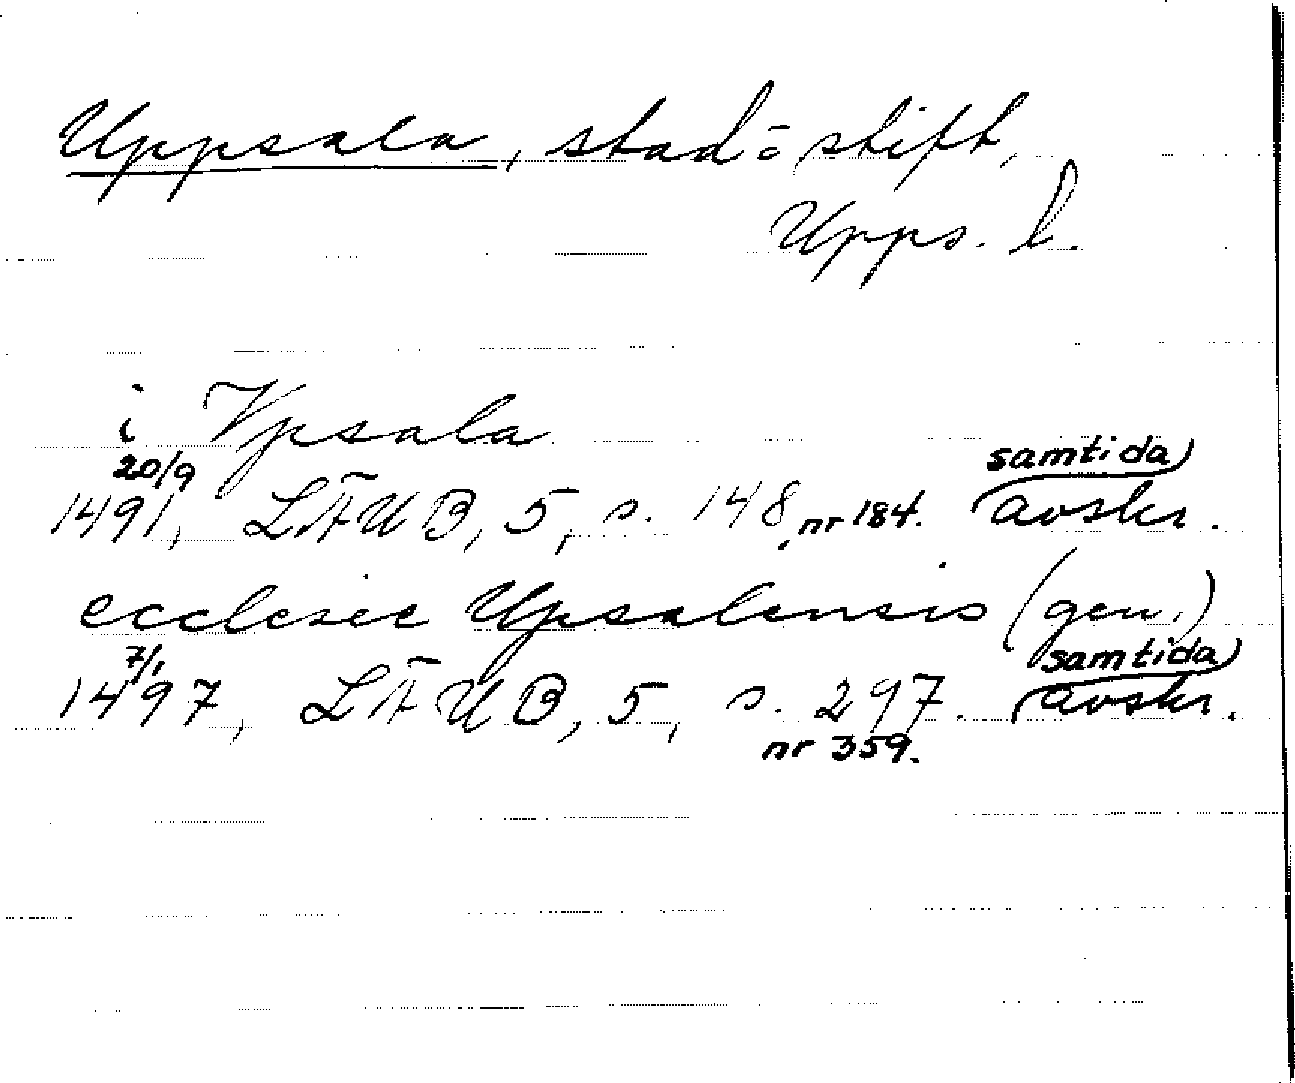 Uppsala, stad o. stift,
Upps. l.
i Vpsala
20/9 samtida
1491, LÄUB, 5, s. 148, nr 184. avskr.
ecclesie Upsalensis (gen.)
7/1 samtida
1497, LÄUB, 5, s. 297. avskr.
nr 359.